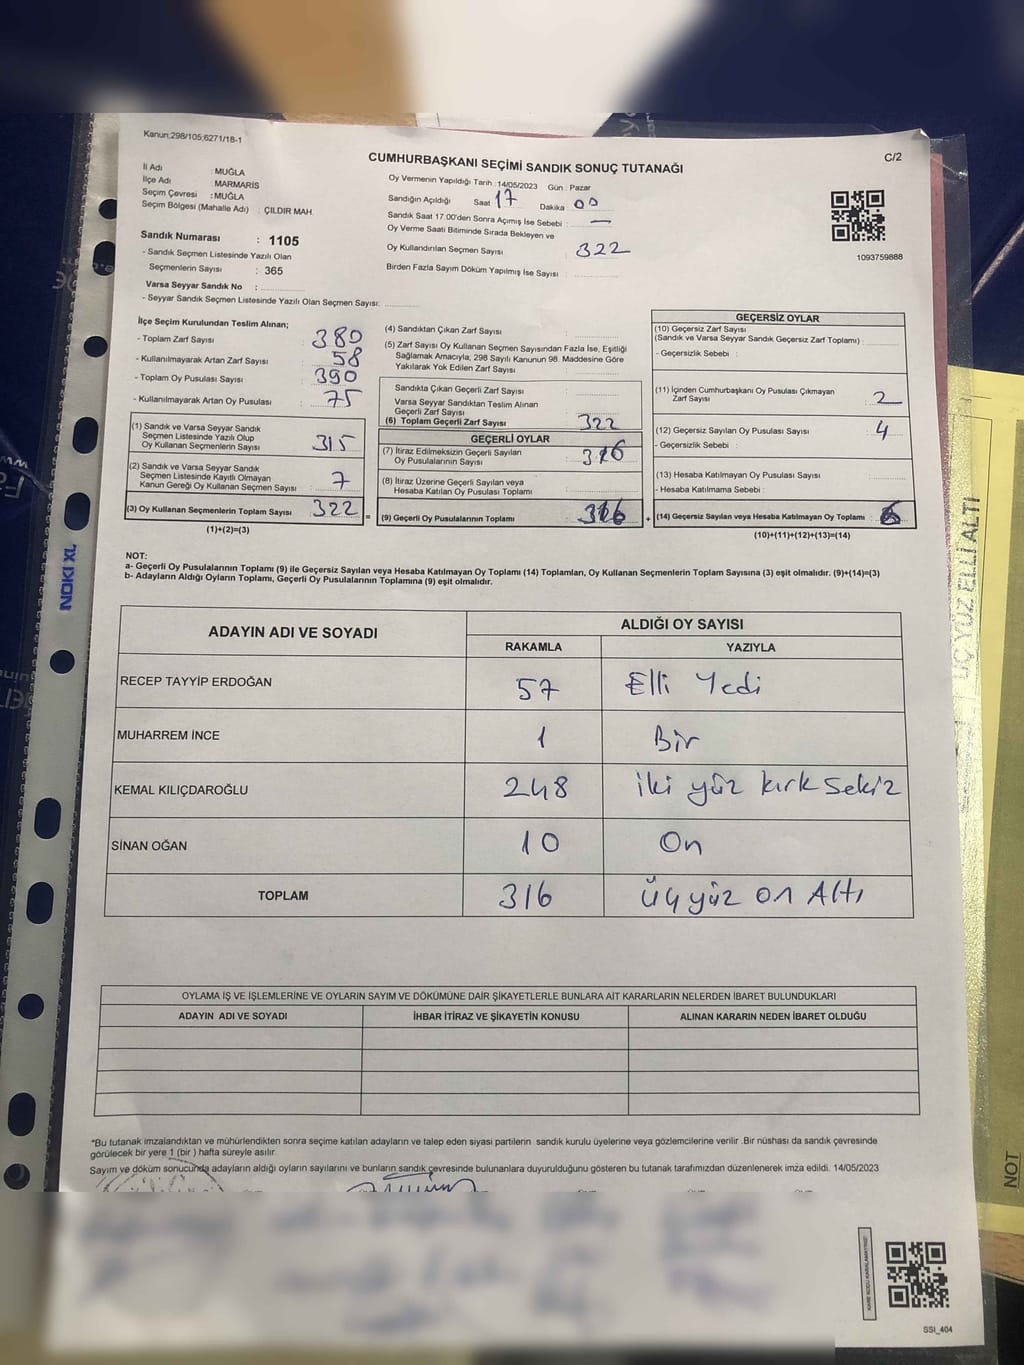 Kanun:298/105,6271/18-1
CUMHURBAŞKANI SEÇİMİ SANDIK SONUÇ TUTANAĞI
C/2
İli Adı : MUĞLA
İlçe Adı : MARMARİS
Seçim Çevresi : MUĞLA
Seçim Bölgesi (Mahalle Adı) : ÇILDIR MAH.
Oy Vermenin Yapıldığı Tarih :14/05/2023 Gün : Pazar
Sandığın Açıldığı Saat 17 Dakika 00
Sandık Saat 17:00'den Sonra Açımış İse Sebebi : —
Oy Verme Saati Bitiminde Sırada Bekleyen ve
Oy Kullandırılan Seçmen Sayısı 322
Birden Fazla Sayım Döküm Yapılmış İse Sayısı :
1093759888
Sandık Numarası : 1105
- Sandık Seçmen Listesinde Yazılı Olan
Seçmenlerin Sayısı : 365
Varsa Seyyar Sandık No :
- Seyyar Sandık Seçmen Listesinde Yazılı Olan Seçmen Sayısı:
İlçe Seçim Kurulundan Teslim Alınan;
- Toplam Zarf Sayısı : 380
- Kullanılmayarak Artan Zarf Sayısı : 58
- Toplam Oy Pusulası Sayısı : 390
- Kullanılmayarak Artan Oy Pusulası : 75
(1) Sandık ve Varsa Seyyar Sandık
Seçmen Listesinde Yazılı Olup
Oy Kullanan Seçmenlerin Sayısı : 315
(2) Sandık ve Varsa Seyyar Sandık
Seçmen Listesinde Kayıtlı Olmayan
Kanun Gereği Oy Kullanan Seçmen Sayısı : 7
(3) Oy Kullanan Seçmenlerin Toplam Sayısı : 322 =
(1)+(2)=(3)
(4) Sandıktan Çıkan Zarf Sayısı :
(5) Zarf Sayısı Oy Kullanan Seçmen Sayısından Fazla İse, Eşitliği
Sağlamak Amacıyla, 298 Sayılı Kanunun 98. Maddesine Göre
Yakılarak Yok Edilen Zarf Sayısı :
Sandıkta Çıkan Geçerli Zarf Sayısı :
Varsa Seyyar Sandıktan Teslim Alınan
Geçerli Zarf Sayısı :
(6) Toplam Geçerli Zarf Sayısı : 322
GEÇERLİ OYLAR
(7) İtiraz Edilmeksizin Geçerli Sayılan
Oy Pusulalarının Sayısı : 316
(8) İtiraz Üzerine Geçerli Sayılan veya
Hesaba Katılan Oy Pusulası Toplamı :
(9) Geçerli Oy Pusulalarının Toplamı : 316 +
GEÇERSİZ OYLAR
(10) Geçersiz Zarf Sayısı
(Sandık ve Varsa Seyyar Sandık Geçersiz Zarf Toplamı) :
- Geçersizlik Sebebi :
(11) İçinden Cumhurbaşkanı Oy Pusulası Çıkmayan
Zarf Sayısı : 2
(12) Geçersiz Sayılan Oy Pusulası Sayısı : 4
- Geçersizlik Sebebi :
(13) Hesaba Katılmayan Oy Pusulası Sayısı :
- Hesaba Katılmama Sebebi :
(14) Geçersiz Sayılan veya Hesaba Katılmayan Oy Toplamı : 6
(10)+(11)+(12)+(13)=(14)
NOT:
a- Geçerli Oy Pusulalarının Toplamı (9) ile Geçersiz Sayılan veya Hesaba Katılmayan Oy Toplamı (14) Toplamları, Oy Kullanan Seçmenlerin Toplam Sayısına (3) eşit olmalıdır. (9)+(14)=(3)
b- Adayların Aldığı Oyların Toplamı, Geçerli Oy Pusulalarının Toplamına (9) eşit olmalıdır.
ADAYIN ADI VE SOYADI
ALDIĞI OY SAYISI
RAKAMLA YAZIYLA
RECEP TAYYİP ERDOĞAN 57 Elli Yedi
MUHARREM İNCE 1 Bir
KEMAL KILIÇDAROĞLU 248 iki yüz kırk sekiz
SİNAN OĞAN 10 On
TOPLAM 316 Üçyüz on Altı
OYLAMA İŞ VE İŞLEMLERİNE VE OYLARIN SAYIM VE DÖKÜMÜNE DAİR ŞİKAYETLERLE BUNLARA AİT KARARLARIN NELERDEN İBARET BULUNDUKLARI
ADAYIN ADI VE SOYADI İHBAR İTİRAZ VE ŞİKAYETİN KONUSU ALINAN KARARIN NEDEN İBARET OLDUĞU
*Bu tutanak imzalandıktan ve mühürlendikten sonra seçime katılan adayların ve talep eden siyasi partilerin sandık kurulu üyelerine veya gözlemcilerine verilir .Bir nüshası da sandık çevresinde
görülecek bir yere 1 (bir ) hafta süreyle asılır.
Sayım ve döküm sonucunda adayların aldığı oyların sayılarını ve bunların sandık çevresinde bulunanlara duyurulduğunu gösteren bu tutanak tarafımızdan düzenlenerek imza edildi. 14/05/2023
SSI_404
NOKI XL
ÜÇ YÜZ ELLİ ALTI
NOT